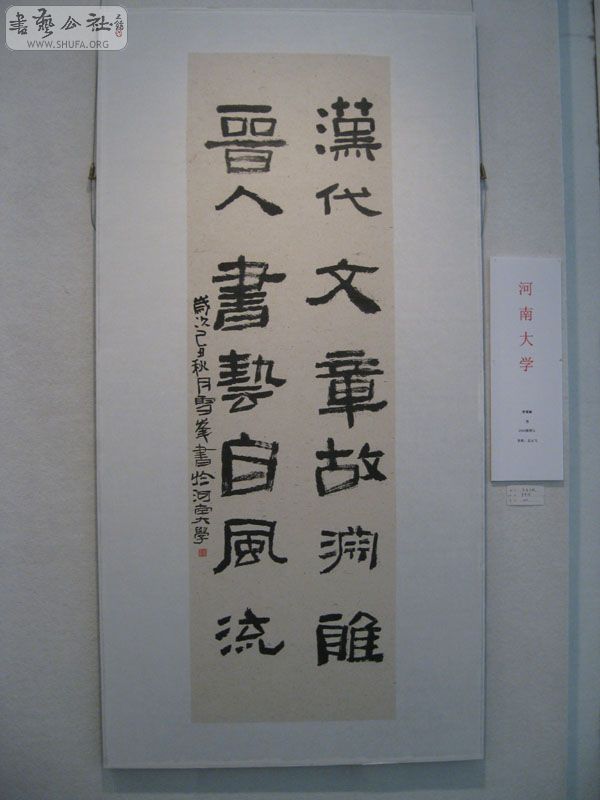 書藝公社
WWW.SHUFA.ORG
漢代文章故淵雅
晉人書藝自風流
歲次己丑秋月雪峯書於河南大學
河南大学